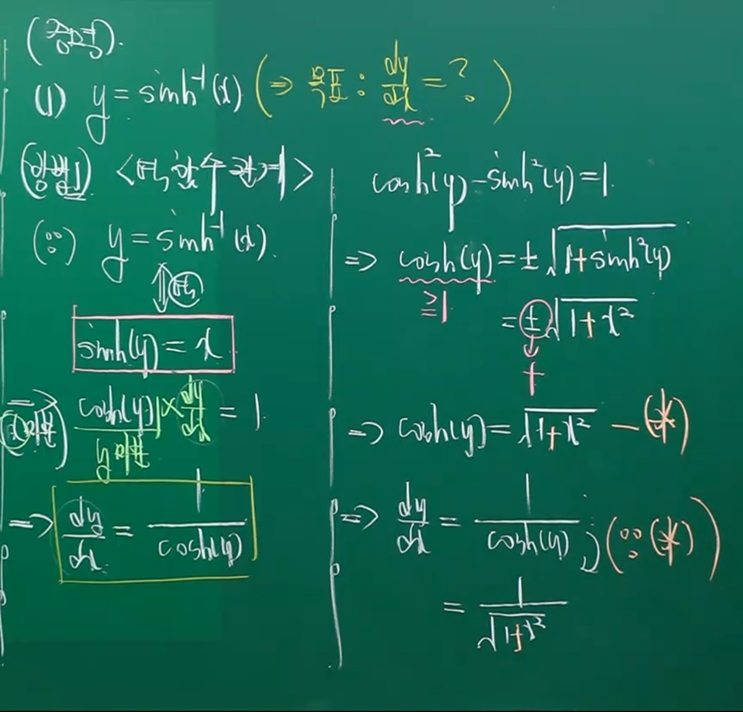 (증명).
(1) y = sinh⁻¹(x) (⇒ 목표 : dy/dx = ?)
<역함수 관계>
(∵) y = sinh⁻¹(x).
⇕
sinh(y) = x
⇒ cosh(y) × dy/dx = 1.
⇒ dy/dx = 1/cosh(y)
cosh²(y) - sinh²(y) = 1.
⇒ cosh(y) = ±√(1+sinh²(y))
≥1
= ±√(1+x²)
↓
+
⇒ cosh(y) = √(1+x²) - (*)
⇒ dy/dx = 1/cosh(y) ; (∵ (*))
= 1/√(1+x²)